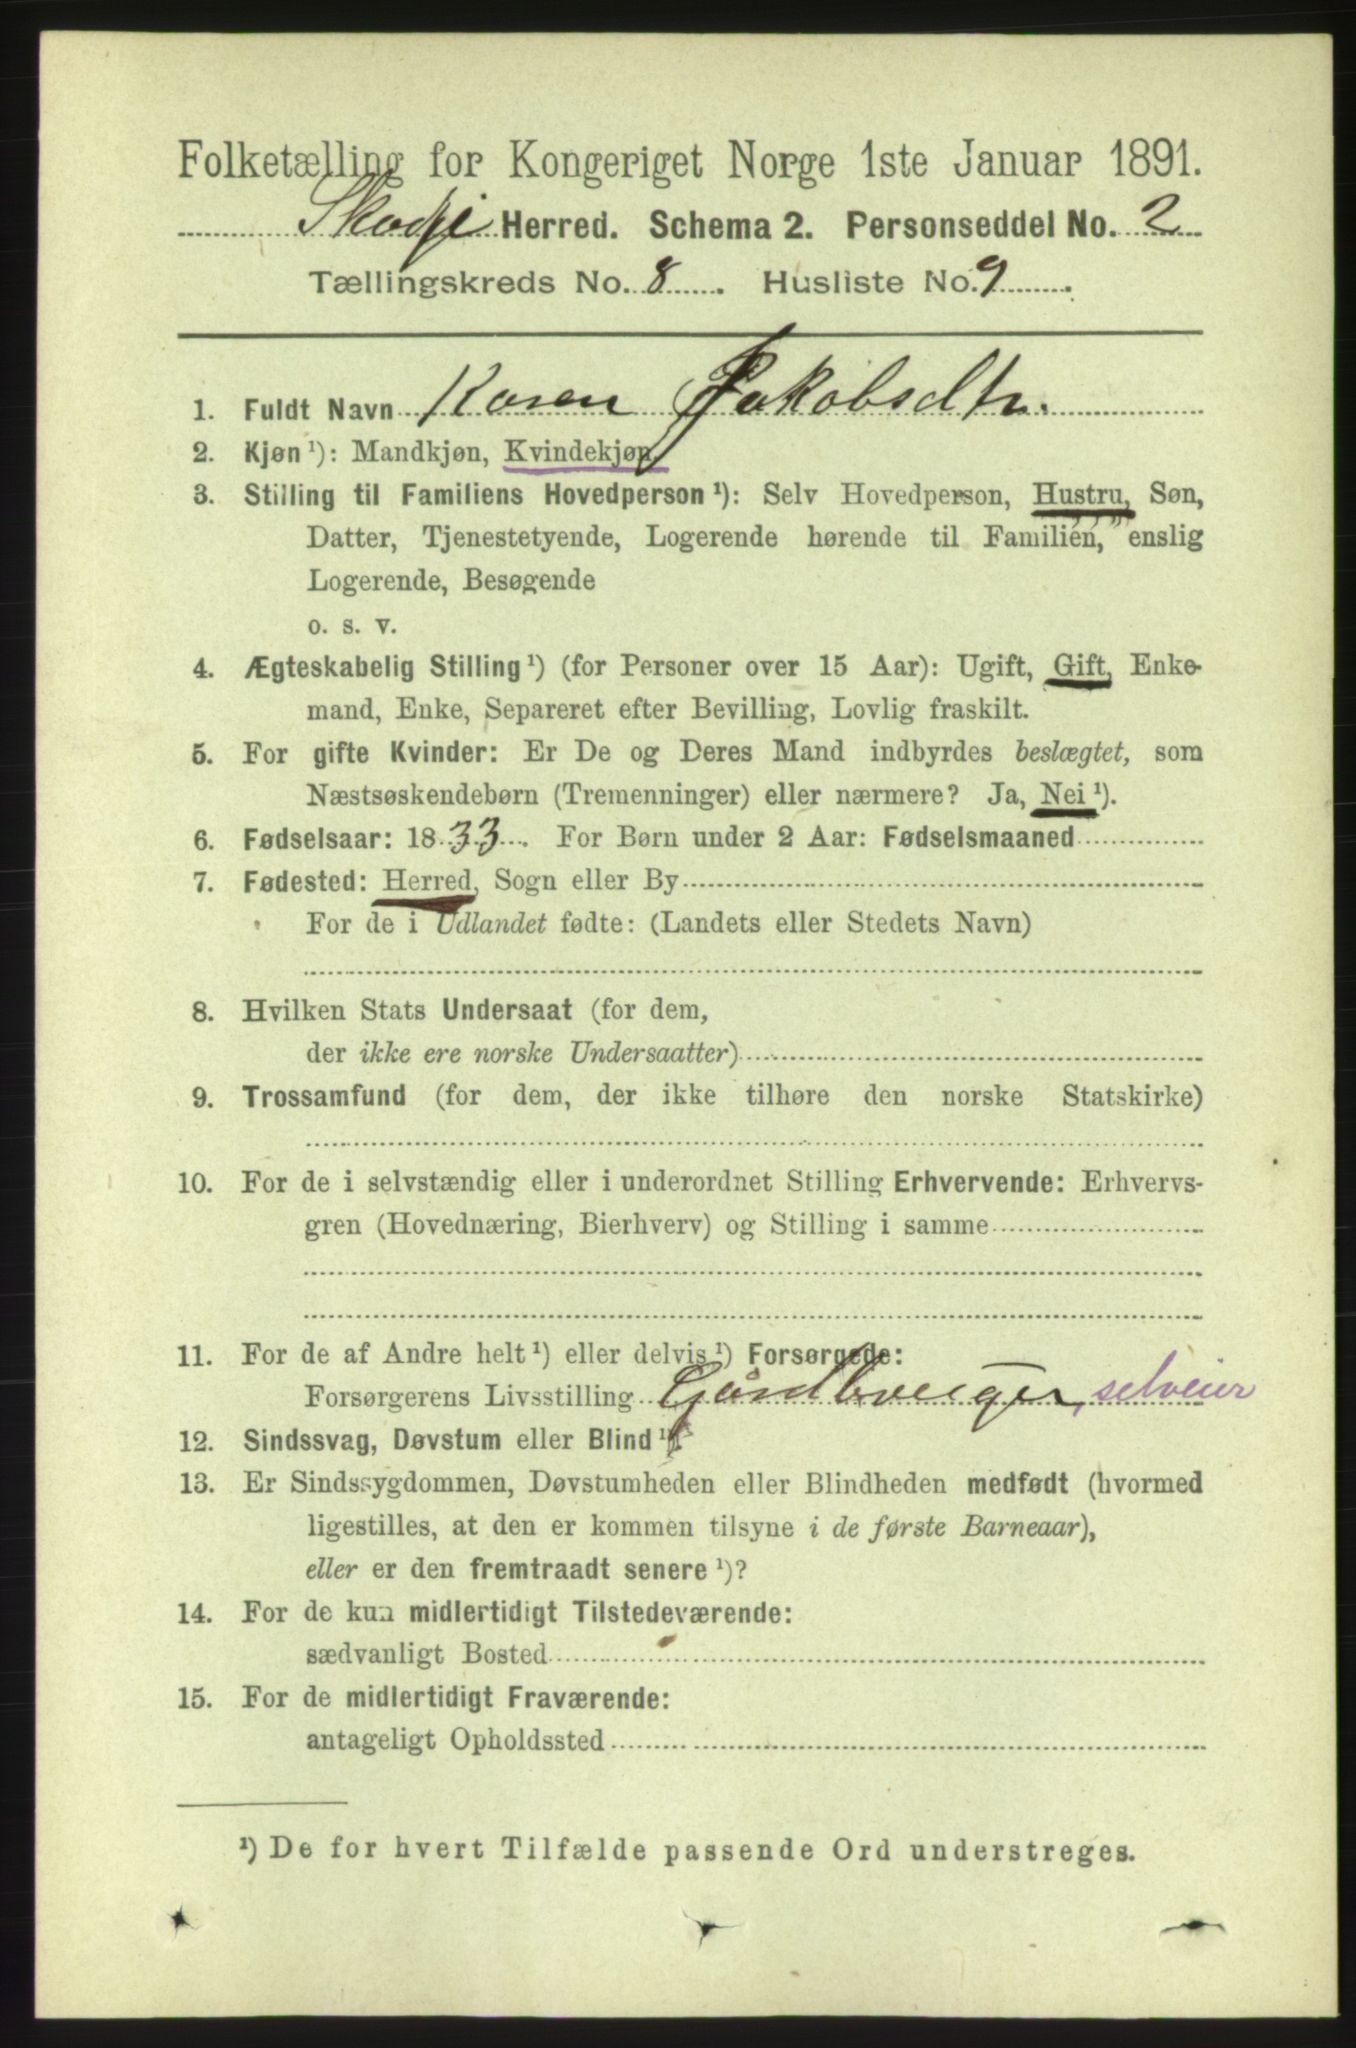 Folketælling for Kongeriget Norge 1ste Januar 1891.
Skodje Herred. Schema 2. Personseddel No. 2
Tællingskreds No. 8. Husliste No. 9.
1. Fuldt Navn Karen Jakobsdtr.
2. Kjøn ¹): Mandkjøn, Kvindekjøn.
3. Stilling til Familiens Hovedperson ¹): Selv Hovedperson, Hustru, Søn,
Datter, Tjenestetyende, Logerende hørende til Familien, enslig
Logerende, Besøgende
o. s. v.
4. Ægteskabelig Stilling ¹) (for Personer over 15 Aar): Ugift, Gift, Enke-
mand, Enke, Separeret efter Bevilling, Lovlig fraskilt.
5. For gifte Kvinder: Er De og Deres Mand indbyrdes beslægtet, som
Næstsøskendebørn (Tremenninger) eller nærmere? Ja, Nei ¹).
6. Fødselsaar: 1833. For Børn under 2 Aar: Fødselsmaaned
7. Fødested: Herred, Sogn eller By
For de i Udlandet fødte: (Landets eller Stedets Navn)
8. Hvilken Stats Undersaat (for dem,
der ikke ere norske Undersaatter)
9. Trossamfund (for dem, der ikke tilhøre den norske Statskirke)
10. For de i selvstændig eller i underordnet Stilling Erhvervende: Erhvervs-
gren (Hovednæring, Bierhverv) og Stilling i samme
11. For de af Andre helt ¹) eller delvis ¹) Forsørgede:
Forsørgerens Livsstilling Gårdbruger, selveier
12. Sindssvag, Døvstum eller Blind ¹).
13. Er Sindssygdommen, Døvstumheden eller Blindheden medfødt (hvormed
ligestilles, at den er kommen tilsyne i de første Barneaar),
eller er den fremtraadt senere ¹)?
14. For de kun midlertidigt Tilstedeværende:
sædvanligt Bosted
15. For de midlertidigt Fraværende:
antageligt Opholdssted
¹) De for hvert Tilfælde passende Ord understreges.